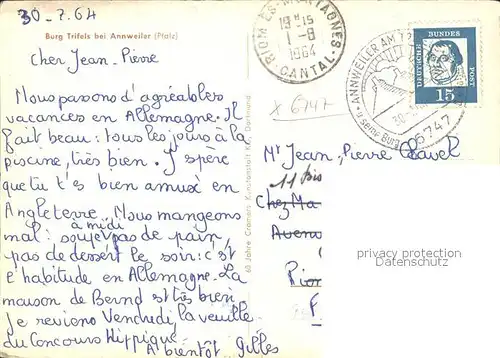 30-7.64
Burg Trifels bei Annweiler (Pfalz)
Cher Jean-Pierre
Nous passons d'agréables
vacances en Allemagne. Il
fait beau: tous les jours à la
piscine, très bien. J'spère
que tu t'es bien amusé en
Angleterre. Nous mangeons
à midi
mal: soupe pas de pain,
pas de dessert le soir: c'est
l'habitude en Allemagne. La
maison de Bernd est très bien
je reviens Vendredi la veuille
du Concours Hippique.
A bientôt Gilles
60 Jahre Cramers Kunstanstalt KG, Dortmund
RIOM ÈS MONTAGNES
19H15
1-8
1964
CANTAL
X 6747
ANNWEILER AM
seine Burg
30-
6747
DEUTSCHE BUNDESPOST
15
Mr Jean-Pierre Clavel
11 Bis
Chez Ma
Avenue
Riom
privacy protection
Datenschutz